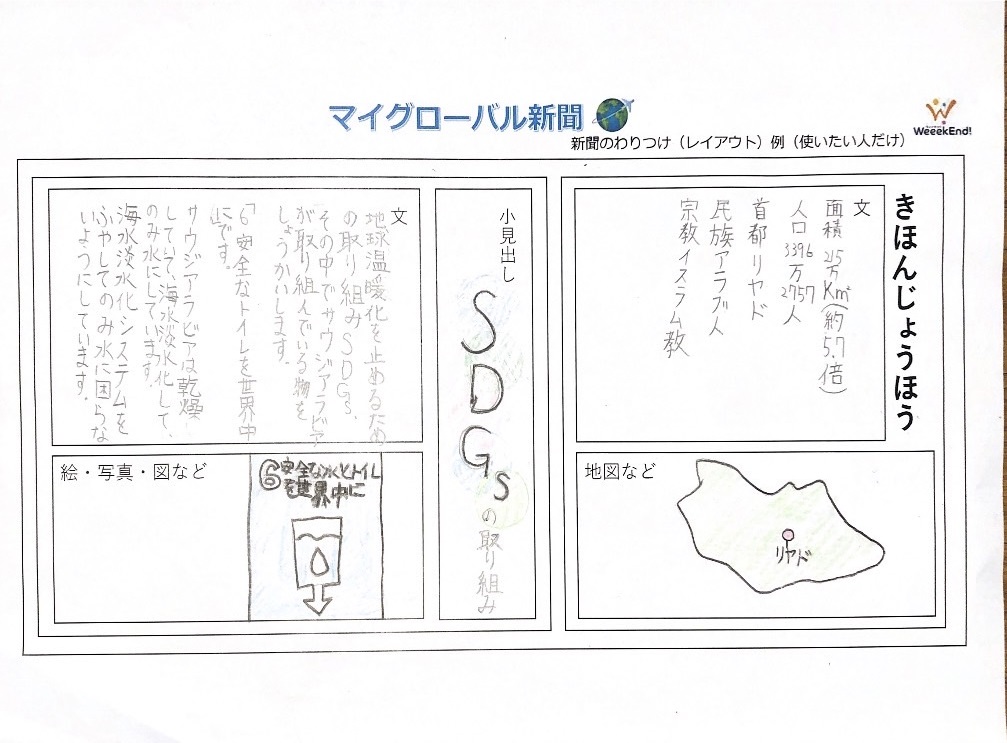 マイグローバル新聞
WeeekEnd!
新聞のわりつけ（レイアウト）例（使いたい人だけ）
きほんじょうほう
文
面積 215万Km²(約5.7倍)
人口3396万2757人
首都リヤド
民族アラブ人
宗教イスラム教
地図など
リヤド
小見出し
SDGsの取り組み
文
地球温暖化を止めるため
の取り組みSDGs、
その中でサウジアラビア
が取り組んでいる物を
しょうかいします。
「6安全なトイレを世界中
に」です。
サウジアラビアは乾燥
していて、海水淡水化して、
のみ水にしています。
海水淡水化システムを
ふやしてのみ水に困らな
いようにしています。
絵・写真・図など
⑥安全な水とトイレ
を世界中に